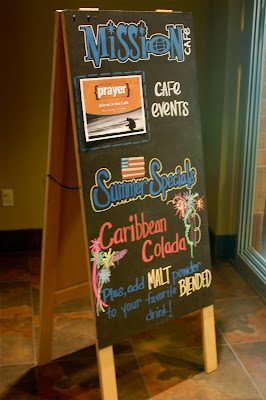 Mission
CAFE
prayer
CAFE
EVENTS
Summer Specials
Caribbean
Colada
Plus, add MALT powder
to your favorite BLENDED
drink!